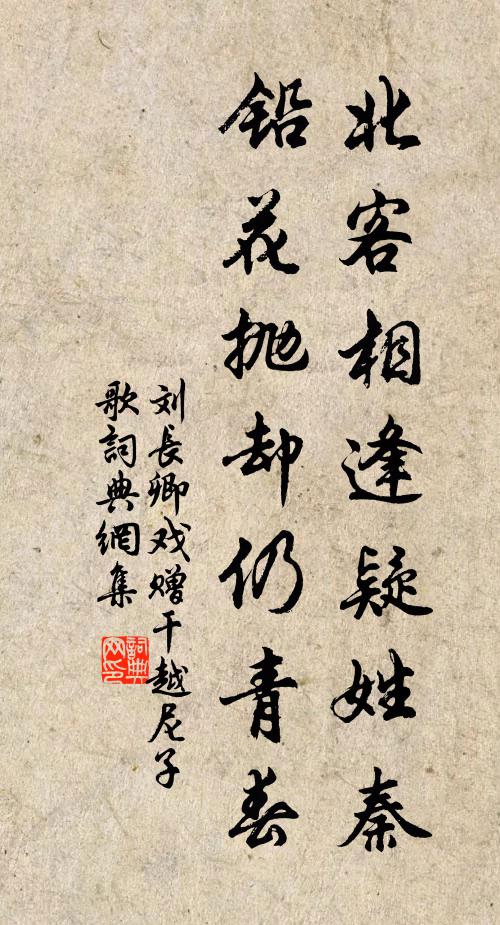 北客相逢疑姓秦
铅花抛却仍青春
刘長卿戏赠干越尼子
歌詞典網集
詞典网印